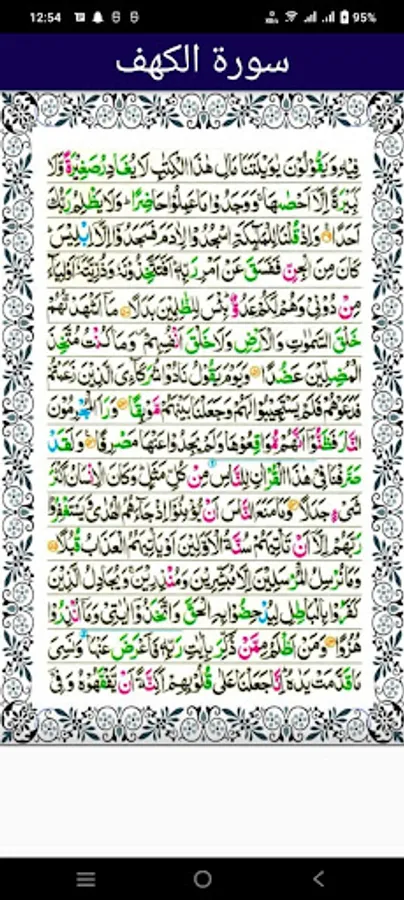 12:54
95%
سورة الكهف
فِيْهِ وَيَقُوْلُوْنَ يٰوَيْلَتَنَا مَالِ هٰذَا الْكِتٰبِ لَا يُغَادِرُ صَغِيْرَةً وَّلَا
كَبِيْرَةً اِلَّاۤ اَحْصٰىهَا ۚ وَوَجَدُوْا مَا عَمِلُوْا حَاضِرًا ؕ وَلَا يَظْلِمُ رَبُّكَ
اَحَدًا وَاِذْ قُلْنَا لِلْمَلٰٓئِكَةِ اسْجُدُوْا لِاٰدَمَ فَسَجَدُوْۤا اِلَّاۤ اِبْلِيْسَ ؕ
كَانَ مِنَ الْجِنِّ فَفَسَقَ عَنْ اَمْرِ رَبِّهٖ ؕ اَفَتَتَّخِذُوْنَهٗ وَذُرِّيَّتَهٗۤ اَوْلِيَآءَ
مِنْ دُوْنِيْ وَهُمْ لَكُمْ عَدُوٌّ ؕ بِئْسَ لِلظّٰلِمِيْنَ بَدَلًا مَاۤ اَشْهَدْتُّهُمْ
خَلْقَ السَّمٰوٰتِ وَالْاَرْضِ وَلَا خَلْقَ اَنْفُسِهِمْ ۪ وَمَا كُنْتُ مُتَّخِذَ
الْمُضِلِّيْنَ عَضُدًا وَيَوْمَ يَقُوْلُ نَادُوْا شُرَكَآءِيَ الَّذِيْنَ زَعَمْتُمْ
فَدَعَوْهُمْ فَلَمْ يَسْتَجِيْبُوْا لَهُمْ وَجَعَلْنَا بَيْنَهُمْ مَّوْبِقًا وَرَاَ الْمُجْرِمُوْنَ
النَّارَ فَظَنُّوْۤا اَنَّهُمْ مُّوَاقِعُوْهَا وَلَمْ يَجِدُوْا عَنْهَا مَصْرِفًا وَلَقَدْ
صَرَّفْنَا فِيْ هٰذَا الْقُرْاٰنِ لِلنَّاسِ مِنْ كُلِّ مَثَلٍ ؕ وَكَانَ الْاِنْسَانُ اَكْثَرَ
شَيْءٍ جَدَلًا وَمَا مَنَعَ النَّاسَ اَنْ يُّؤْمِنُوْۤا اِذْ جَآءَهُمُ الْهُدٰى وَيَسْتَغْفِرُوْا
رَبَّهُمْ اِلَّاۤ اَنْ تَاْتِيَهُمْ سُنَّةُ الْاَوَّلِيْنَ اَوْ يَاْتِيَهُمُ الْعَذَابُ قُبُلًا
وَمَا نُرْسِلُ الْمُرْسَلِيْنَ اِلَّا مُبَشِّرِيْنَ وَمُنْذِرِيْنَ ۚ وَيُجَادِلُ الَّذِيْنَ
كَفَرُوْا بِالْبَاطِلِ لِيُدْحِضُوْا بِهِ الْحَقَّ وَاتَّخَذُوْۤا اٰيٰتِيْ وَمَاۤ اُنْذِرُوْا
هُزُوًا وَمَنْ اَظْلَمُ مِمَّنْ ذُكِّرَ بِاٰيٰتِ رَبِّهٖ فَاَعْرَضَ عَنْهَا وَنَسِيَ
مَا قَدَّمَتْ يَدٰهُ ؕ اِنَّا جَعَلْنَا عَلٰى قُلُوْبِهِمْ اَكِنَّةً اَنْ يَّفْقَهُوْهُ وَفِيْۤ